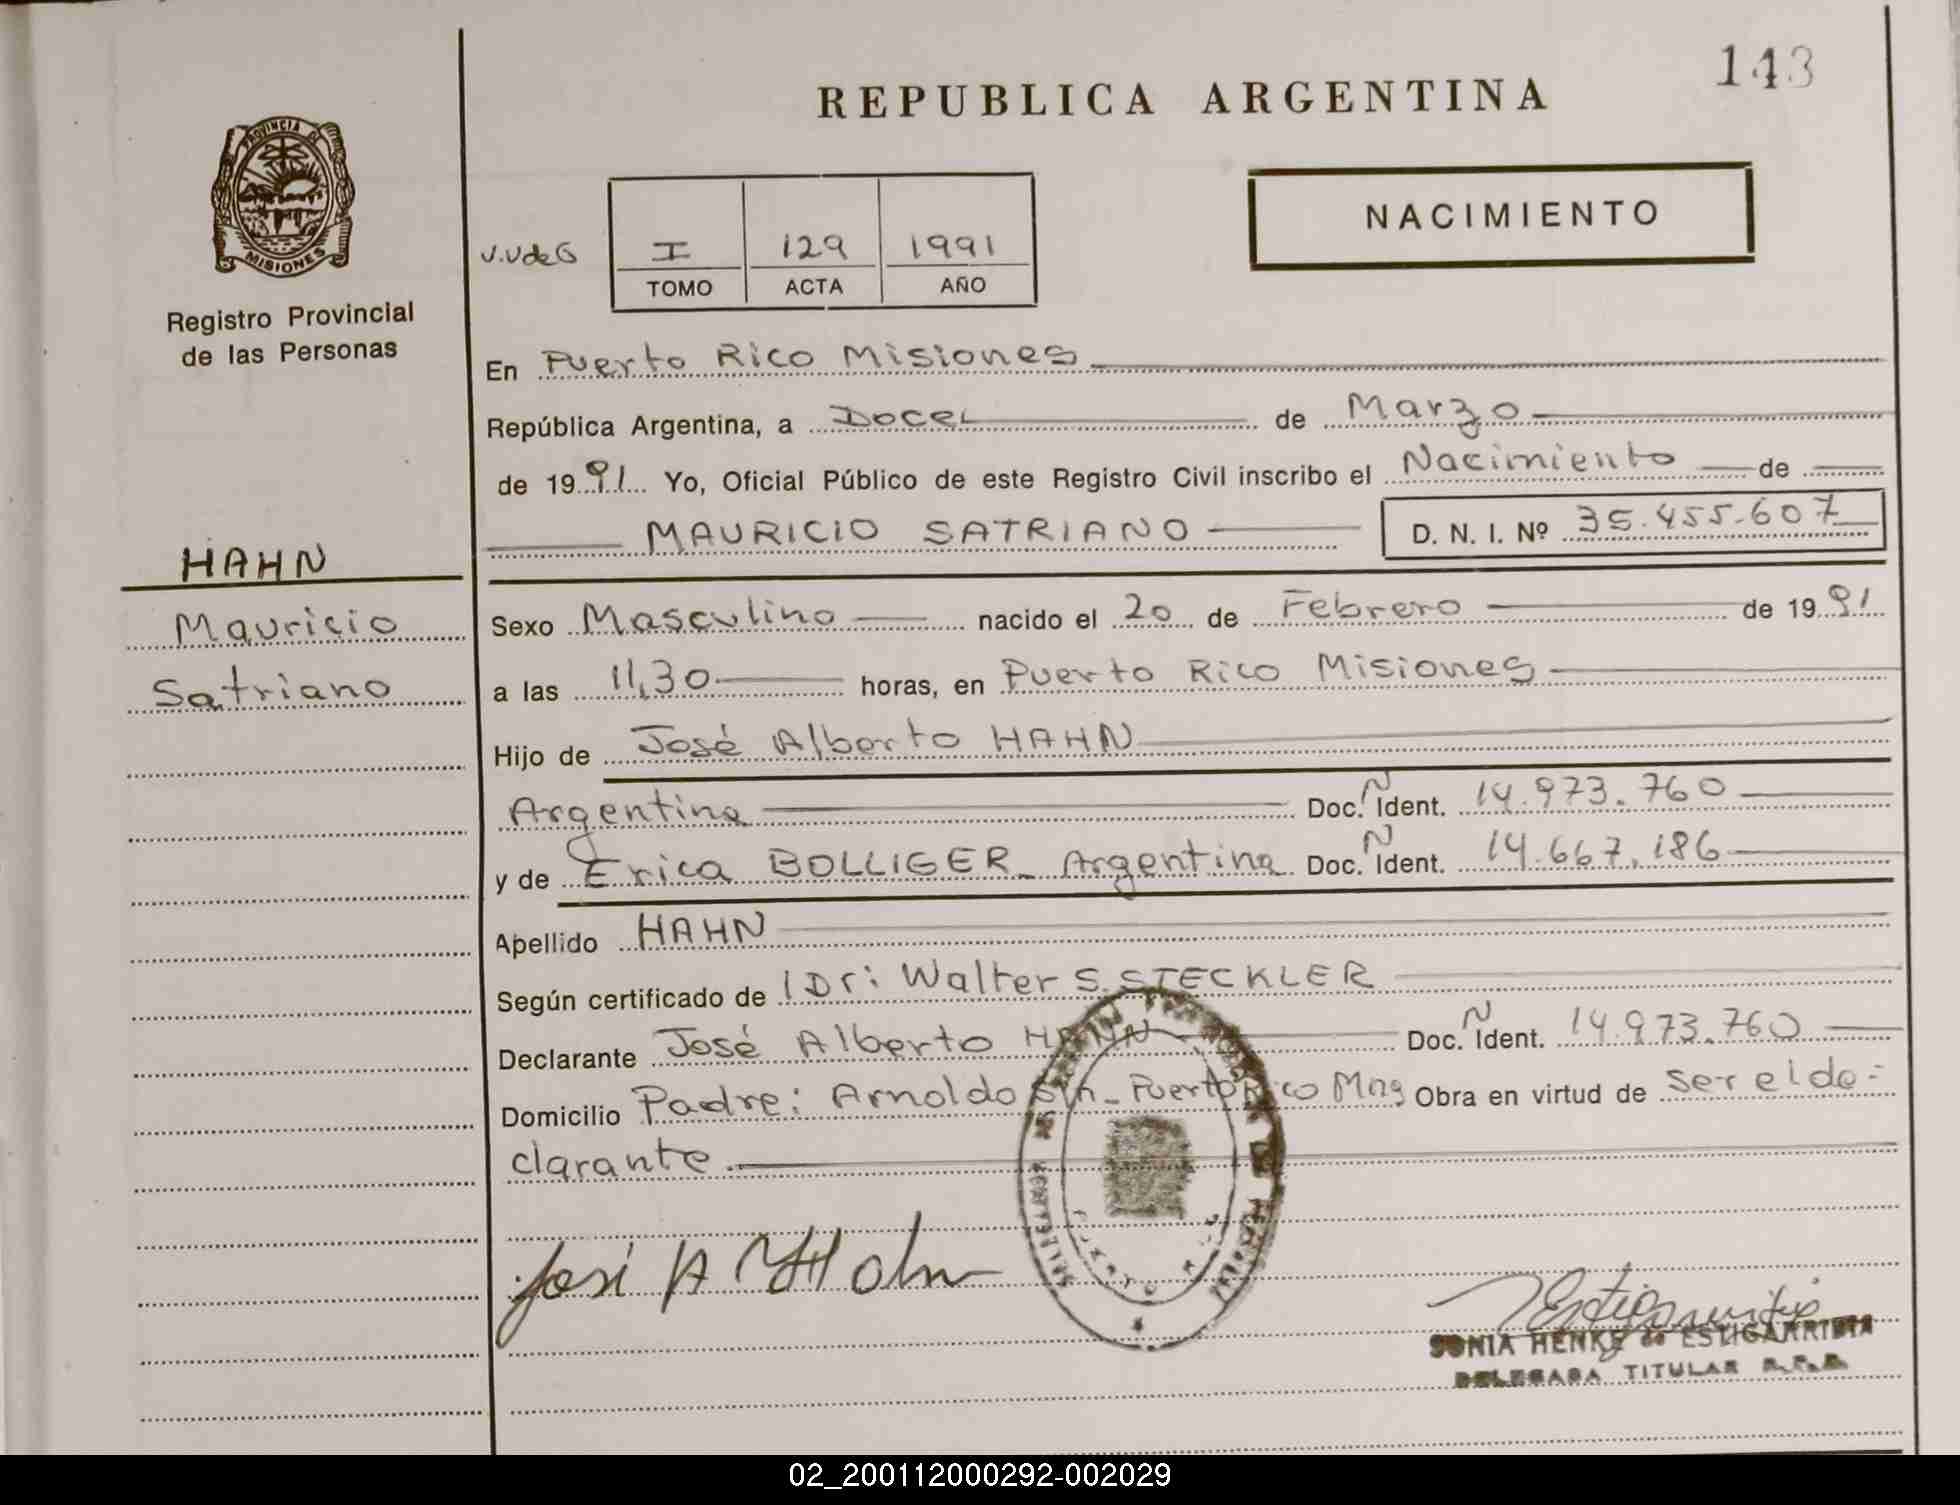 143
REPUBLICA ARGENTINA
PROVINCIA DE
MISIONES
Registro Provincial
de las Personas
NACIMIENTO
V.VdeG
I 129 1991
TOMO ACTA AÑO
En Puerto Rico Misiones
República Argentina, a Doce de Marzo
de 1991 Yo, Oficial Público de este Registro Civil inscribo el Nacimiento de
MAURICIO SATRIANO D. N. I. Nº 35.455.607
HAHN
Mauricio
Satriano
Sexo Masculino nacido el 20 de Febrero de 1991
a las 11,30 horas, en Puerto Rico Misiones
Hijo de José Alberto HAHN
Argentina Doc. N Ident. 14.973.760
y de Erica BOLLIGER_ Argentina Doc. N Ident. 14.667.186
Apellido HAHN
Según certificado de l Dr: Walter S. STECKLER
Declarante José Alberto HAHN Doc. N Ident. 14.973.760
Domicilio Padre: Arnoldo S/n_ Puerto Rico Mnes Obra en virtud de ser el de-
clarante.
José A Hahn
SONIA HENKE de ESTIGARRIBIA
DELEGADA TITULAR R.P.P.
02_200112000292-002029